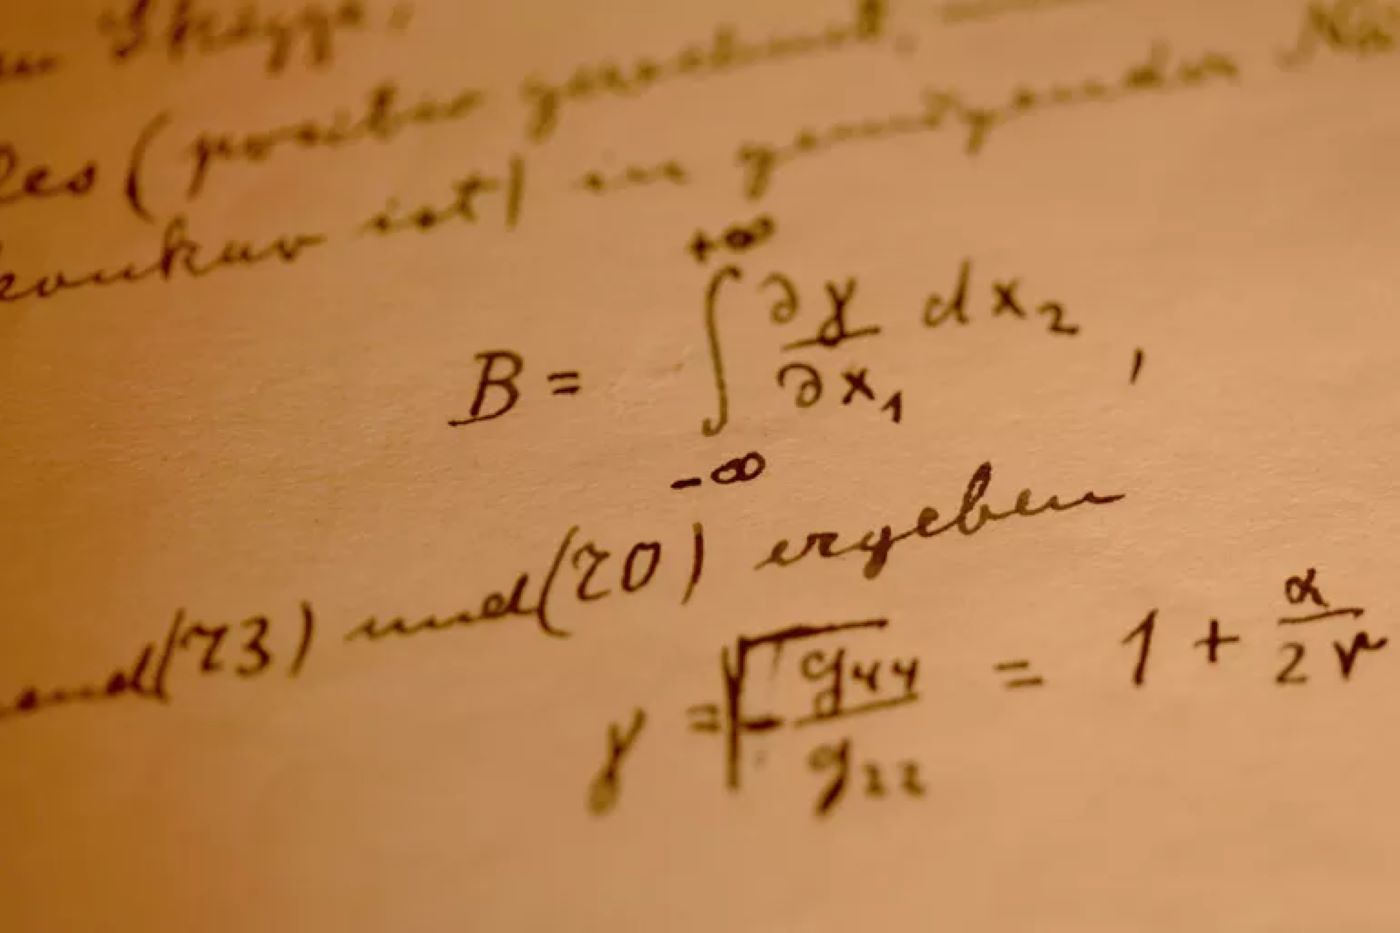 Skizze.
les (positiv gerechnet,
konkav ist) in genügender Nä
B = ∫_{-∞}^{+∞} ∂γ/∂x₁ dx₂ ,
und (73) und (70) ergeben
γ = √(- g₄₄/g₂₂) = 1 + α/2r